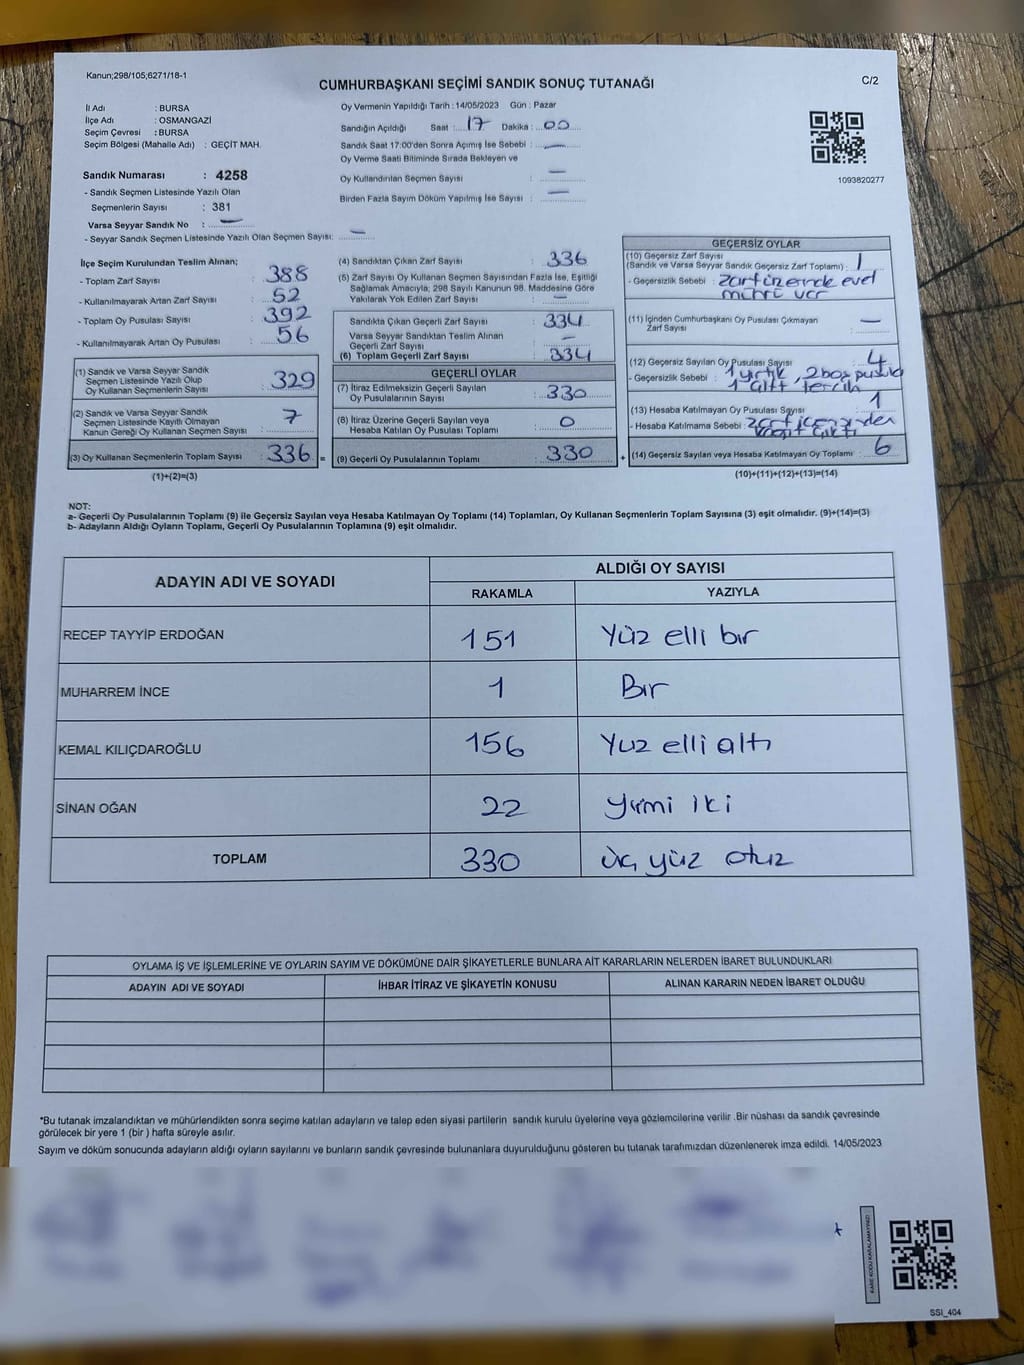 Kanun;298/105;6271/18-1
CUMHURBAŞKANI SEÇİMİ SANDIK SONUÇ TUTANAĞI
C/2
İl Adı : BURSA
İlçe Adı : OSMANGAZİ
Seçim Çevresi : BURSA
Seçim Bölgesi (Mahalle Adı) : GEÇİT MAH.
Sandık Numarası : 4258
- Sandık Seçmen Listesinde Yazılı Olan
Seçmenlerin Sayısı : 381
Varsa Seyyar Sandık No : —
- Seyyar Sandık Seçmen Listesinde Yazılı Olan Seçmen Sayısı: —
Oy Vermenin Yapıldığı Tarih : 14/05/2023 Gün : Pazar
Sandığın Açıldığı Saat : 17 Dakika : 00
Sandık Saat 17:00'den Sonra Açımış İse Sebebi : —
Oy Verme Saati Bitiminde Sırada Bekleyen ve
Oy Kullandırılan Seçmen Sayısı : —
Birden Fazla Sayım Döküm Yapılmış İse Sayısı : —
1093820277
İlçe Seçim Kurulundan Teslim Alınan;
- Toplam Zarf Sayısı : 388
- Kullanılmayarak Artan Zarf Sayısı : 52
- Toplam Oy Pusulası Sayısı : 392
- Kullanılmayarak Artan Oy Pusulası : 56
(1) Sandık ve Varsa Seyyar Sandık
Seçmen Listesinde Yazılı Olup
Oy Kullanan Seçmenlerin Sayısı : 329
(2) Sandık ve Varsa Seyyar Sandık
Seçmen Listesinde Kayıtlı Olmayan
Kanun Gereği Oy Kullanan Seçmen Sayısı : 7
(3) Oy Kullanan Seçmenlerin Toplam Sayısı : 336 =
(1)+(2)=(3)
(4) Sandıktan Çıkan Zarf Sayısı : 336
(5) Zarf Sayısı Oy Kullanan Seçmen Sayısından Fazla İse, Eşitliği
Sağlamak Amacıyla; 298 Sayılı Kanunun 98. Maddesine Göre
Yakılarak Yok Edilen Zarf Sayısı : —
Sandıkta Çıkan Geçerli Zarf Sayısı : 334
Varsa Seyyar Sandıktan Teslim Alınan
Geçerli Zarf Sayısı : —
(6) Toplam Geçerli Zarf Sayısı : 334
GEÇERLİ OYLAR
(7) İtiraz Edilmeksizin Geçerli Sayılan
Oy Pusulalarının Sayısı : 330
(8) İtiraz Üzerine Geçerli Sayılan veya
Hesaba Katılan Oy Pusulalarının Toplamı : 0
(9) Geçerli Oy Pusulalarının Toplamı : 330 +
GEÇERSİZ OYLAR
(10) Geçersiz Zarf Sayısı
(Sandık ve Varsa Seyyar Sandık Geçersiz Zarf Toplamı) : 1
- Geçersizlik Sebebi : zarf üzerinde evet
mührü var
(11) İçinden Cumhurbaşkanı Oy Pusulası Çıkmayan
Zarf Sayısı : —
(12) Geçersiz Sayılan Oy Pusulası Sayısı : 4
- Geçersizlik Sebebi : 1 yırtık, 2 boş pusula
1 çift tercih
(13) Hesaba Katılmayan Oy Pusulası Sayısı : 1
- Hesaba Katılmama Sebebi : zarf içerisinden
kağıt çıktı
(14) Geçersiz Sayılan veya Hesaba Katılmayan Oy Toplamı : 6
(10)+(11)+(12)+(13)=(14)
NOT:
a- Geçerli Oy Pusulalarının Toplamı (9) ile Geçersiz Sayılan veya Hesaba Katılmayan Oy Toplamı (14) Toplamları, Oy Kullanan Seçmenlerin Toplam Sayısına (3) eşit olmalıdır. (9)+(14)=(3)
b- Adayların Aldığı Oyların Toplamı, Geçerli Oy Pusulalarının Toplamına (9) eşit olmalıdır.
ADAYIN ADI VE SOYADI
ALDIĞI OY SAYISI
RAKAMLA YAZIYLA
RECEP TAYYİP ERDOĞAN 151 Yüz elli bir
MUHARREM İNCE 1 Bir
KEMAL KILIÇDAROĞLU 156 Yüz elli altı
SİNAN OĞAN 22 yirmi iki
TOPLAM 330 üç yüz otuz
OYLAMA İŞ VE İŞLEMLERİNE VE OYLARIN SAYIM VE DÖKÜMÜNE DAİR ŞİKAYETLERLE BUNLARA AİT KARARLARIN NELERDEN İBARET BULUNDUKLARI
ADAYIN ADI VE SOYADI İHBAR İTİRAZ VE ŞİKAYETİN KONUSU ALINAN KARARIN NEDEN İBARET OLDUĞU
*Bu tutanak imzalandıktan ve mühürlendikten sonra seçime katılan adayların ve talep eden siyasi partilerin sandık kurulu üyelerine veya gözlemcilerine verilir .Bir nüshası da sandık çevresinde
görülecek bir yere 1 (bir ) hafta süreyle asılır.
Sayım ve döküm sonucunda adayların aldığı oyların sayılarını ve bunların sandık çevresinde bulunanlara duyurulduğunu gösteren bu tutanak tarafımızdan düzenlenerek imza edildi. 14/05/2023
KARE KODU KARALAMAYINIZ!
SSI_404